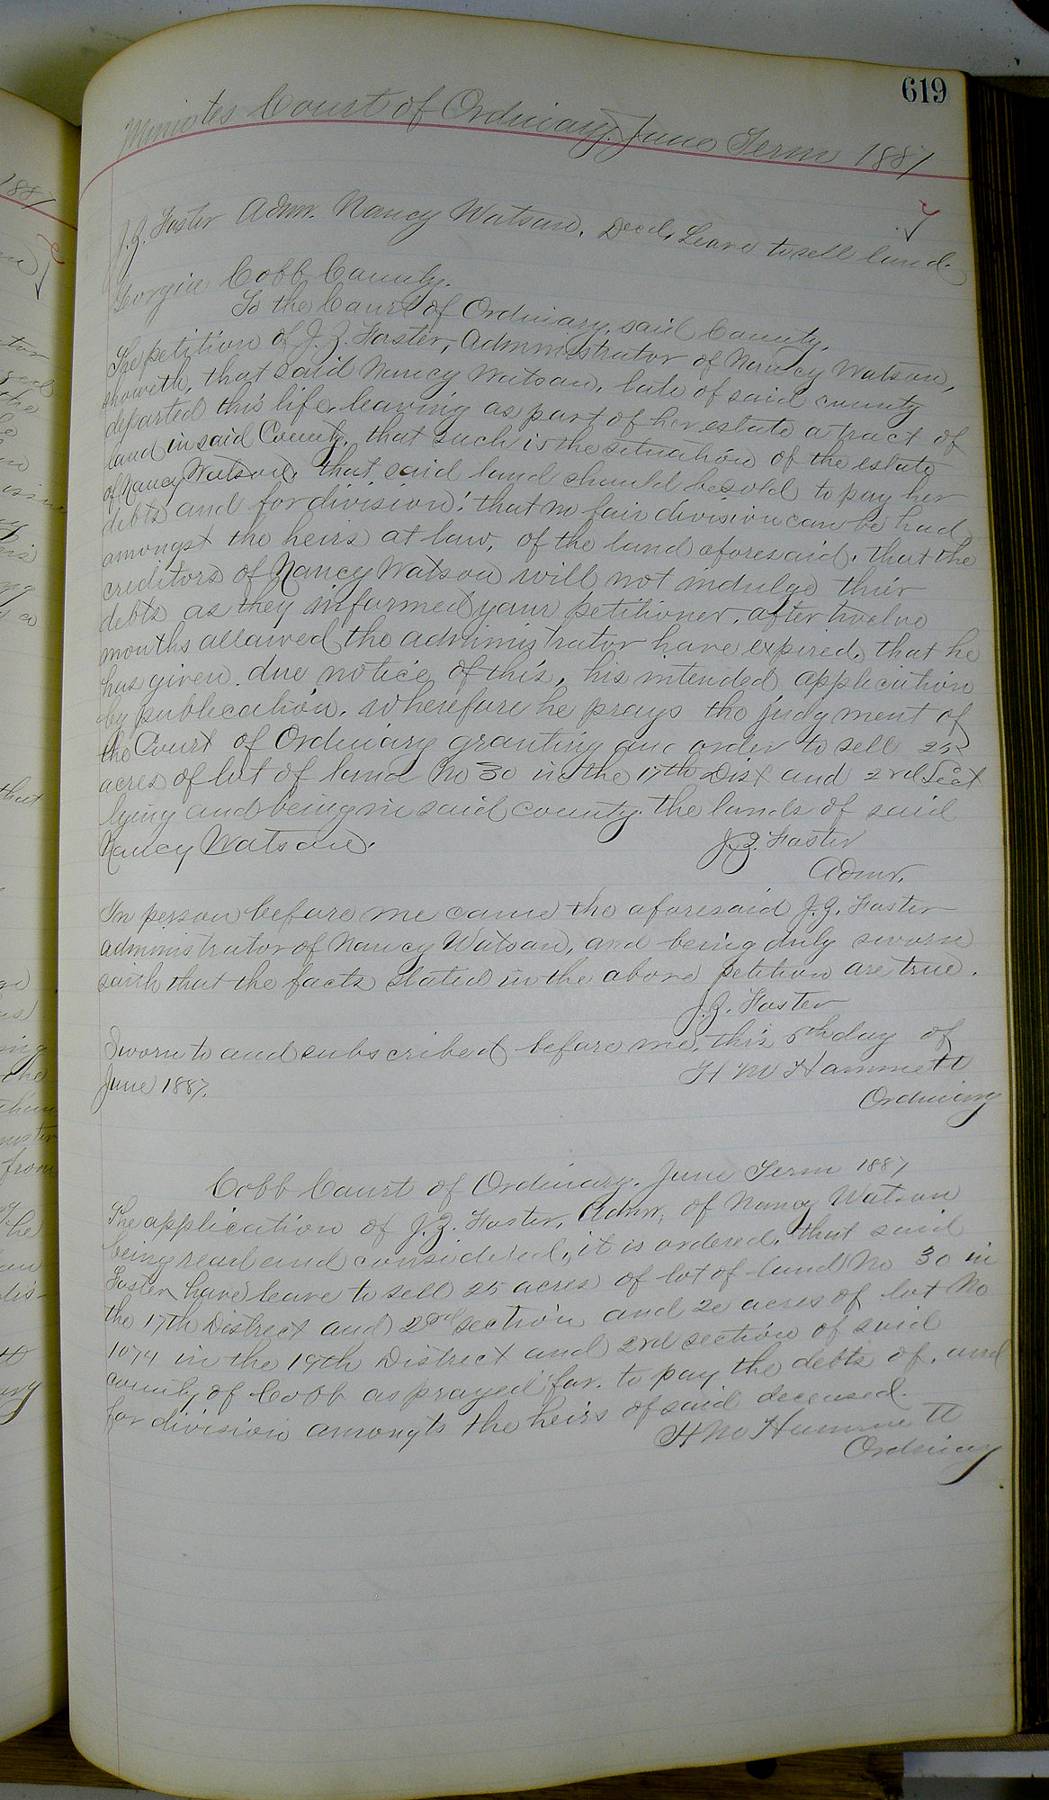 619
Minutes Court of Ordinary. June Term 1887
J. Z. Foster Admr. Nancy Watson, Decd, Leave to sell land.
Gorgia Cobb County.
To the Court of Ordinary, said County.
The petition of J. Z. Foster, Administrator of Nancy Watson,
showith, that said Nancy Watson, late of said county
departed this life, leaving as part of her estate a tract of
land in said County. that such is the situation of the estate
of Nancy Watson, that said land should be sold to pay her
debts and for division: that no fair division can be had
amongst the heirs at law, of the land aforesaid, that the
creditors of Nancy Watson will not indulge their
debts as they informed your petitioner, after twelve
months allowed the administrator have expired, that he
has given due notice of this, his intended application
by publication. Wherefore he prays the judgment of
the Court of Ordinary granting an order to sell 25
acres of lot of land No 30 in the 17th Dist and 2nd Sect
lying and being in said county. the lands of said
Nancy Watson.
J. Z. Foster
Admr.
In person before me came the aforesaid J. Z. Foster
administrator of Nancy Watson, and being duly sworn
saith that the facts stated in the above petition are true.
J. Z. Foster
Sworn to and subscribed before me, this 6th day of
June 1887.
H M Hammett
Ordinary
Cobb Court of Ordinary. June Term 1887
The application of J. Z. Foster, Admr, of Nancy Watson
being read and considered, it is ordered, that said
Foster have leave to sell 25 acres of lot of land No 30 in
the 17th District and 2nd section and 20 acres of lot No
1074 in the 19th District and 2nd section of said
county of Cobb as prayed for. to pay the debts of, and
for division amongts the heirs of said deceased.
H M Hammett
Ordinary